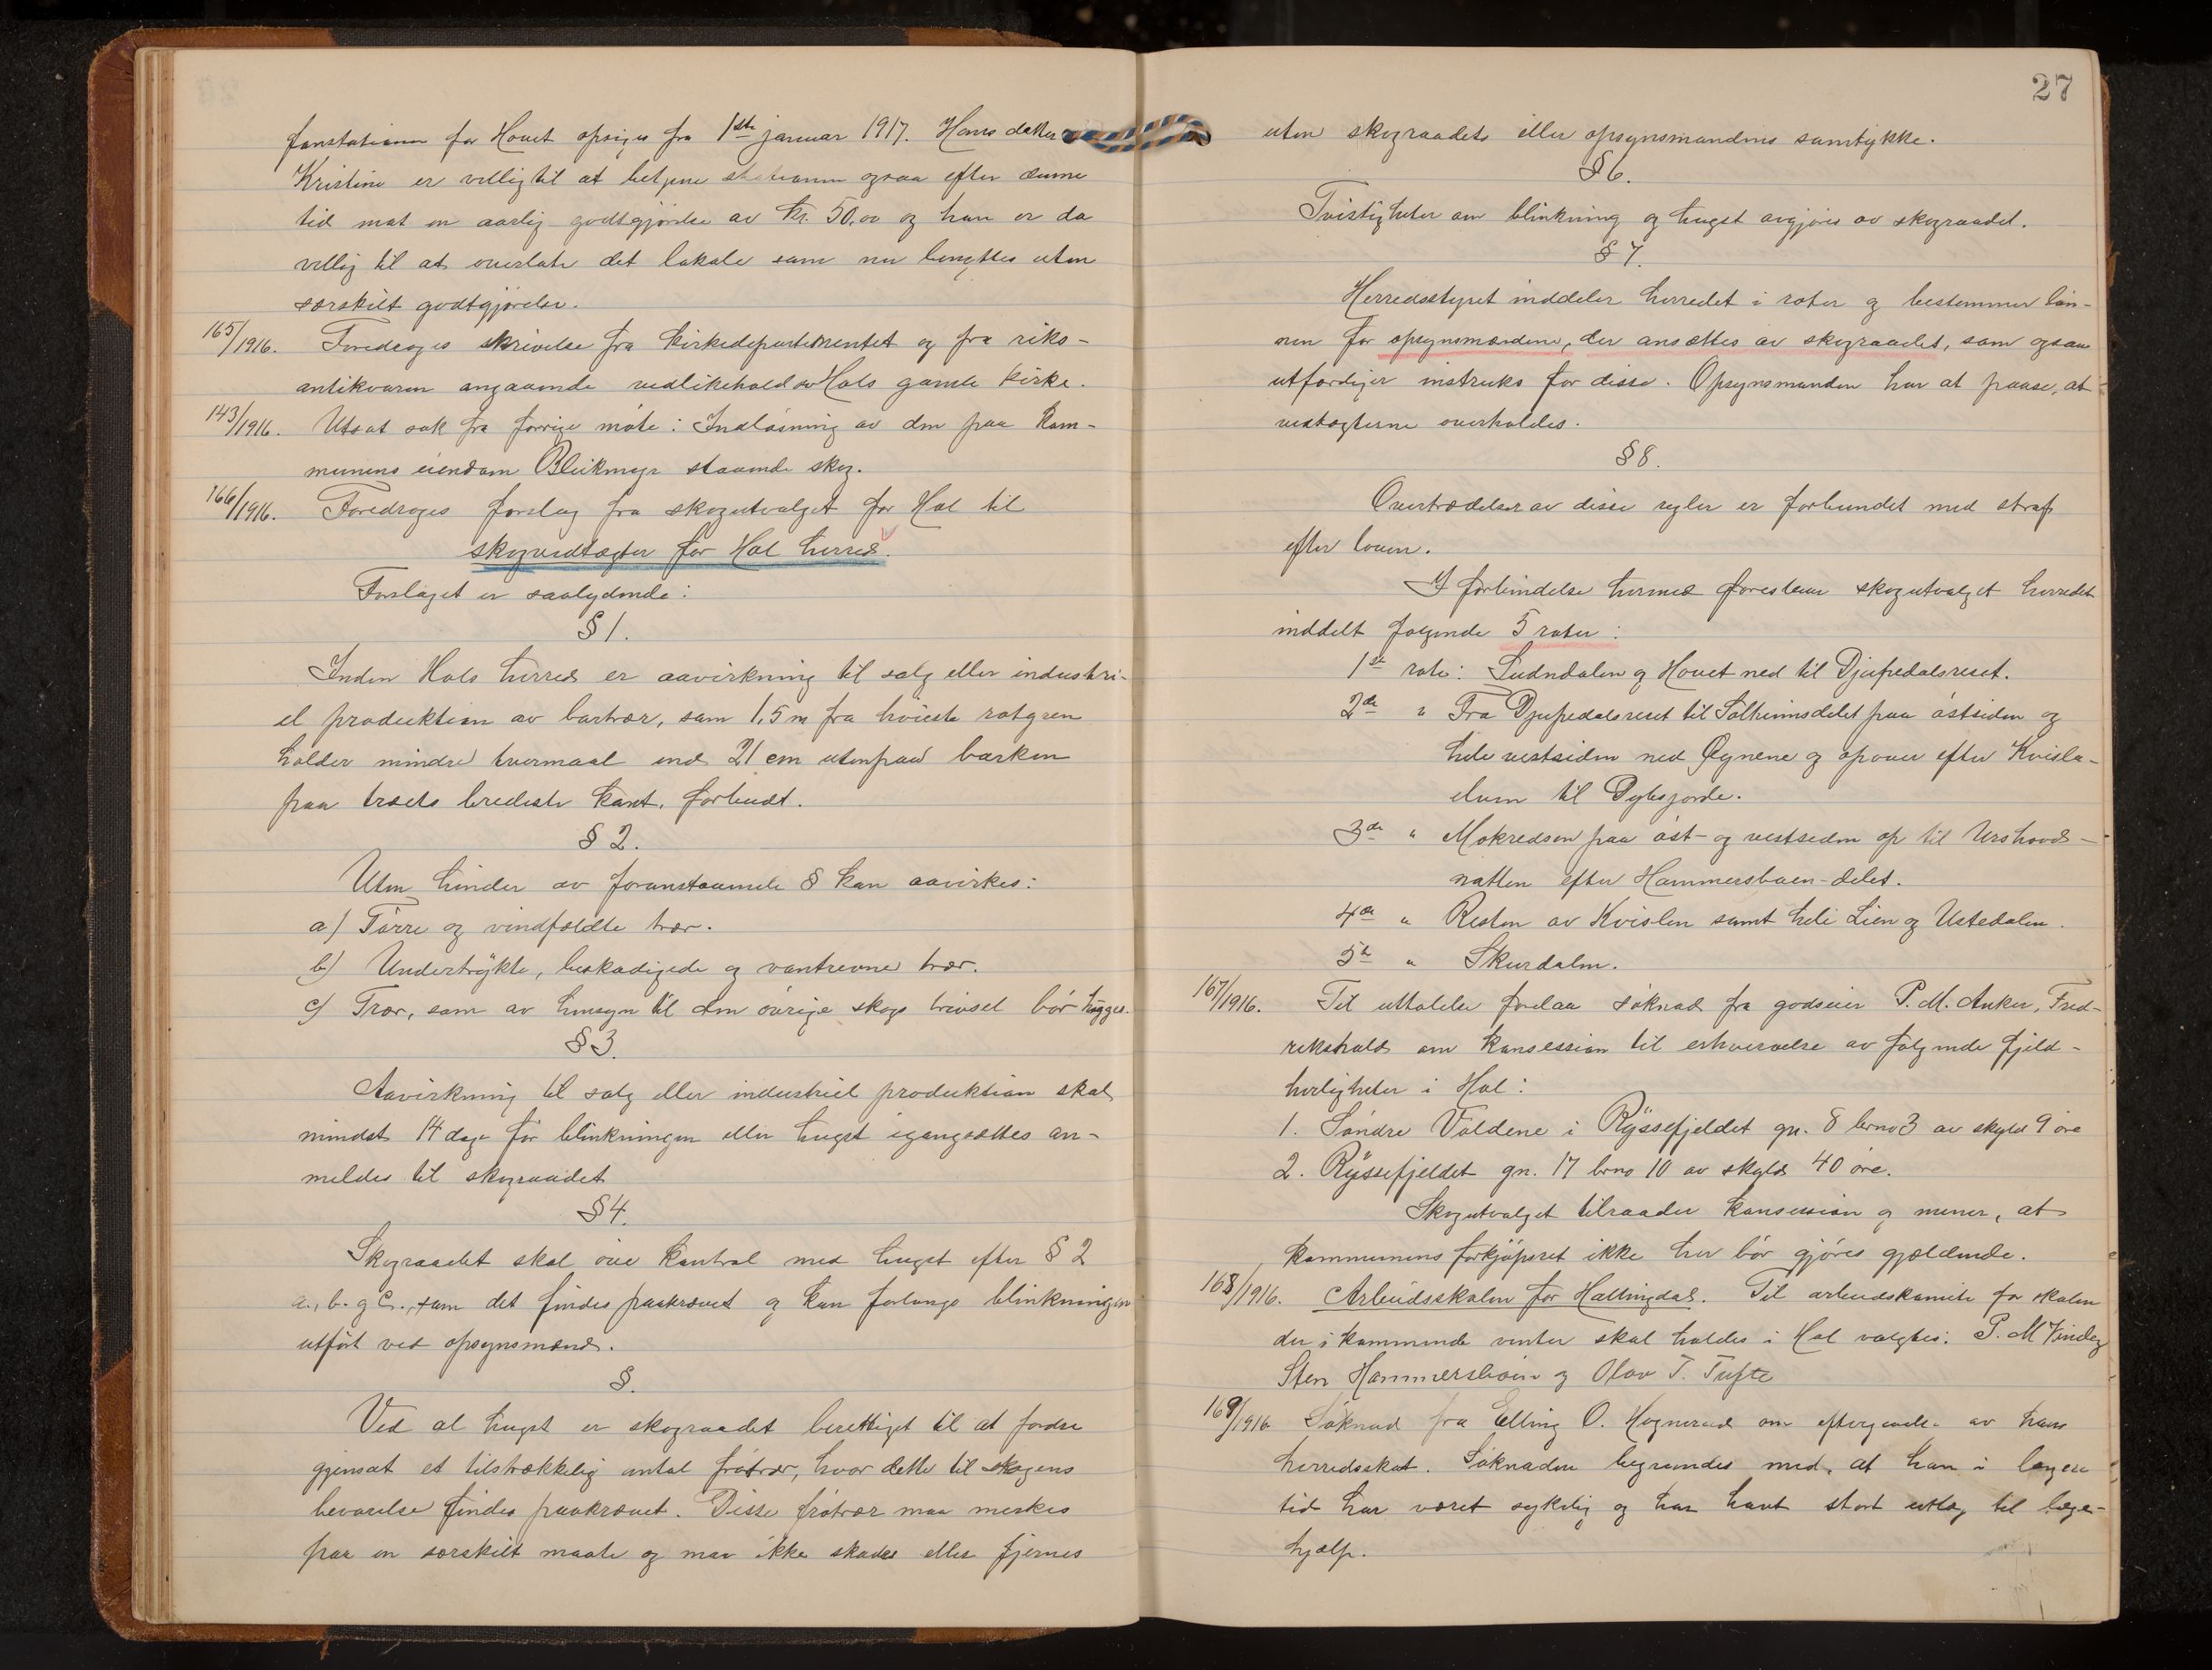 fonstationen for Hovet opsiges fra 1ste januar 1917. Hans datter
Kristine er villig til at betjene stationen ogsaa efter denne
tid mot en aarlig godtgjørelse av kr. 50.00 og han er da
villig til at overlate det lokale som nu benyttes uten
særskilt godtgjørelse.
165/1916. Foredroges skrivelse fra kirkedepartementet og fra riks-
antikvaren angaaende vedlikehold av Hols gamle kirke.
143/1916. Utsat sak fra forrige møte: Indløsning av den paa kom-
munens eiendom Bleikmyr staaende skog.
166/1916. Foredroges forslag fra skogutvalget for Hol til
skogvedtægter for Hol herred.
Forslaget er saalydende:
§ 1.
Inden Hols herred er aavirkning til salg eller industri-
el produktion av bartrær, som 1,5 m fra høieste rotgren
holder mindre tvermaal end 21 cm utenpaa barken
paa træets bredeste kant, forbudt.
§ 2.
Uten hinder av foranstaaende § kan aavirkes:
a) Tørre og vindfældte trær.
b) Undertrykte, beskadigede og vantrevne trær.
c) Trær, som av hensyn til den øvrige skogs trivsel bør hugges.
§ 3.
Aavirkning til salg eller industriel produktion skal
mindst 14 dage før blinkningen eller hugst igangsættes an-
meldes til skograadet
§ 4.
Skograadet skal øve kontrol med hugst efter § 2
a., b. og c., som det findes paakrævet og kan forlange blinkningen
utført ved opsynsmænd.
§.
Ved al hugst er skograadet berettiget til at fordre
gjensat et tilstrækkelig antal frøtrær, hvor dette til skogens
bevarelse findes paakrævet. Disse frøtrær maa merkes
paa en særskilt maate og maa ikke skades eller fjernes
27
uten skograadets eller opsynsmandens samtykke.
§ 6.
Tvistigheter om blinkning og hugst avgjøres av skograadet.
§ 7.
Herredsstyret inddeler herredet i roter og bestemmer løn-
nen for opsynsmændene, der ansættes av skograadet, som ogsaa
utfærdiger instruks for disse. Opsynsmanden har at paase, at
vedtægterne overholdes.
§ 8.
Overtrædelser av disse regler er forbundet med straf
efter loven.
I forbindelse hermed foreslaar skogutvalget herredet
inddelt følgende 5 roter:
1ste rote: Sudndalen og Hovet ned til Djupedalsreset.
2den " Fra Djupedalsreset til Sølheimsdelet paa østsiden og
hele vestsiden ned Øynene og opover efter Kvisla-
elven til Dyhsjorde.
3die " Mokredsen paa øst- og vestsiden op til Urshovd-
natten efter Hammersbøen-delet.
4de " Resten av Kvislen samt hele Lien og Ustedalen.
5te " Skurdalen.
167/1916. Til uttalelse forelaa søknad fra godseier P. M. Anker, Fred-
rikshald om konsession til erhvervelse av følgende fjeld-
herligheter i Hol:
1. Søndre Vøldene i Ryssefjeldet gn. 8 brno 3 av skyld 9 øre
2. Ryssefjeldet gn. 17 brno 10 av skyld 40 øre.
Skogutvalget tilraader konsession og mener, at
kommunens forkjøpsret ikke her bør gjøres gjældende.
168/1916. Arbeidsskolen for Hallingdal. Til arbeidskomite for skolen
der i kommende vinter skal holdes i Hol valgtes: P. M
Sten Hammersbøen og Olav T. Tufte
169/1916 Søknad fra Elling O. Hognerud om eftergivelse av hans
herredsskat. Søknaden begrundes med, at han i længere
tid har været sykelig og har havt stort utlæg til læge-
hjælp.